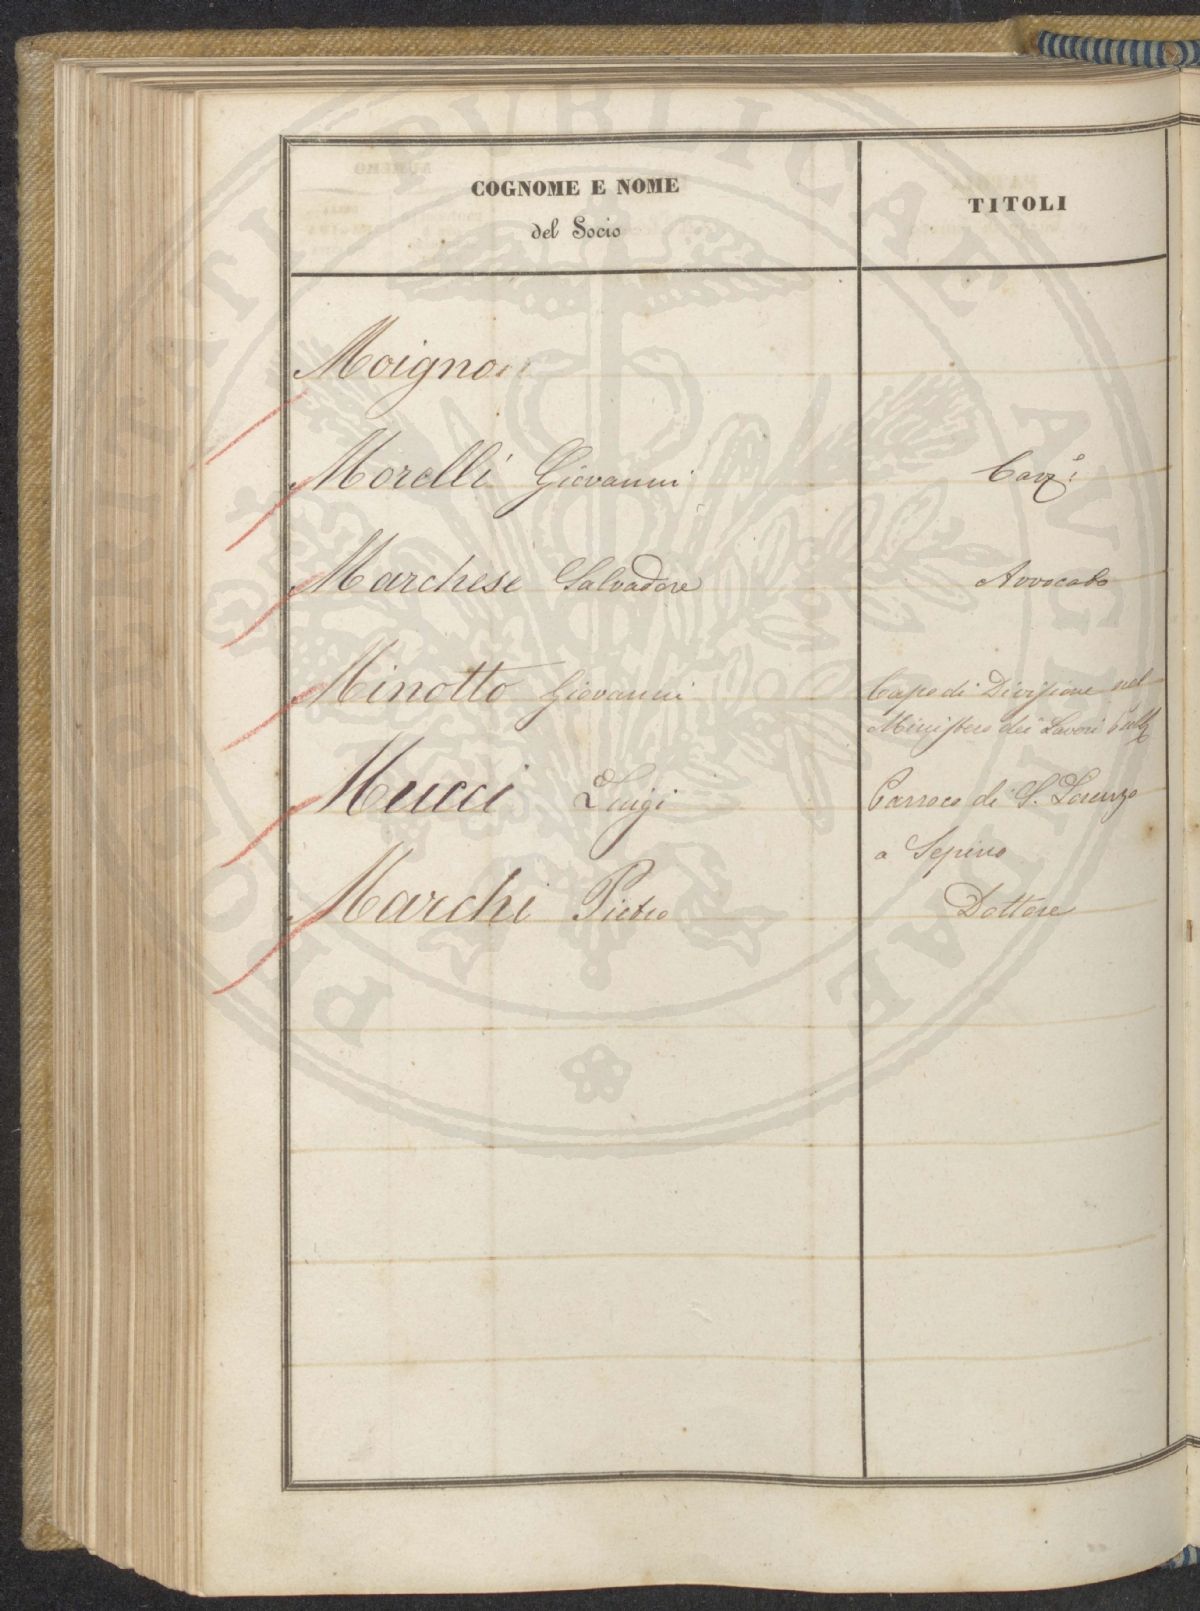 COGNOME E NOME
del Socio
TITOLI
Moignon
Morelli Giovanni
Cav.e
Marchese Salvadore
Avvocato
Minotto Giovanni
Capo di Divisione nel
Ministero dei Lavori Pubb.
Mucci Luigi
Parroco di S. Lorenzo
a Sepino
Marchi Pietro
Dottore
PROSPERITATI PVBLICAE AVGENDAE